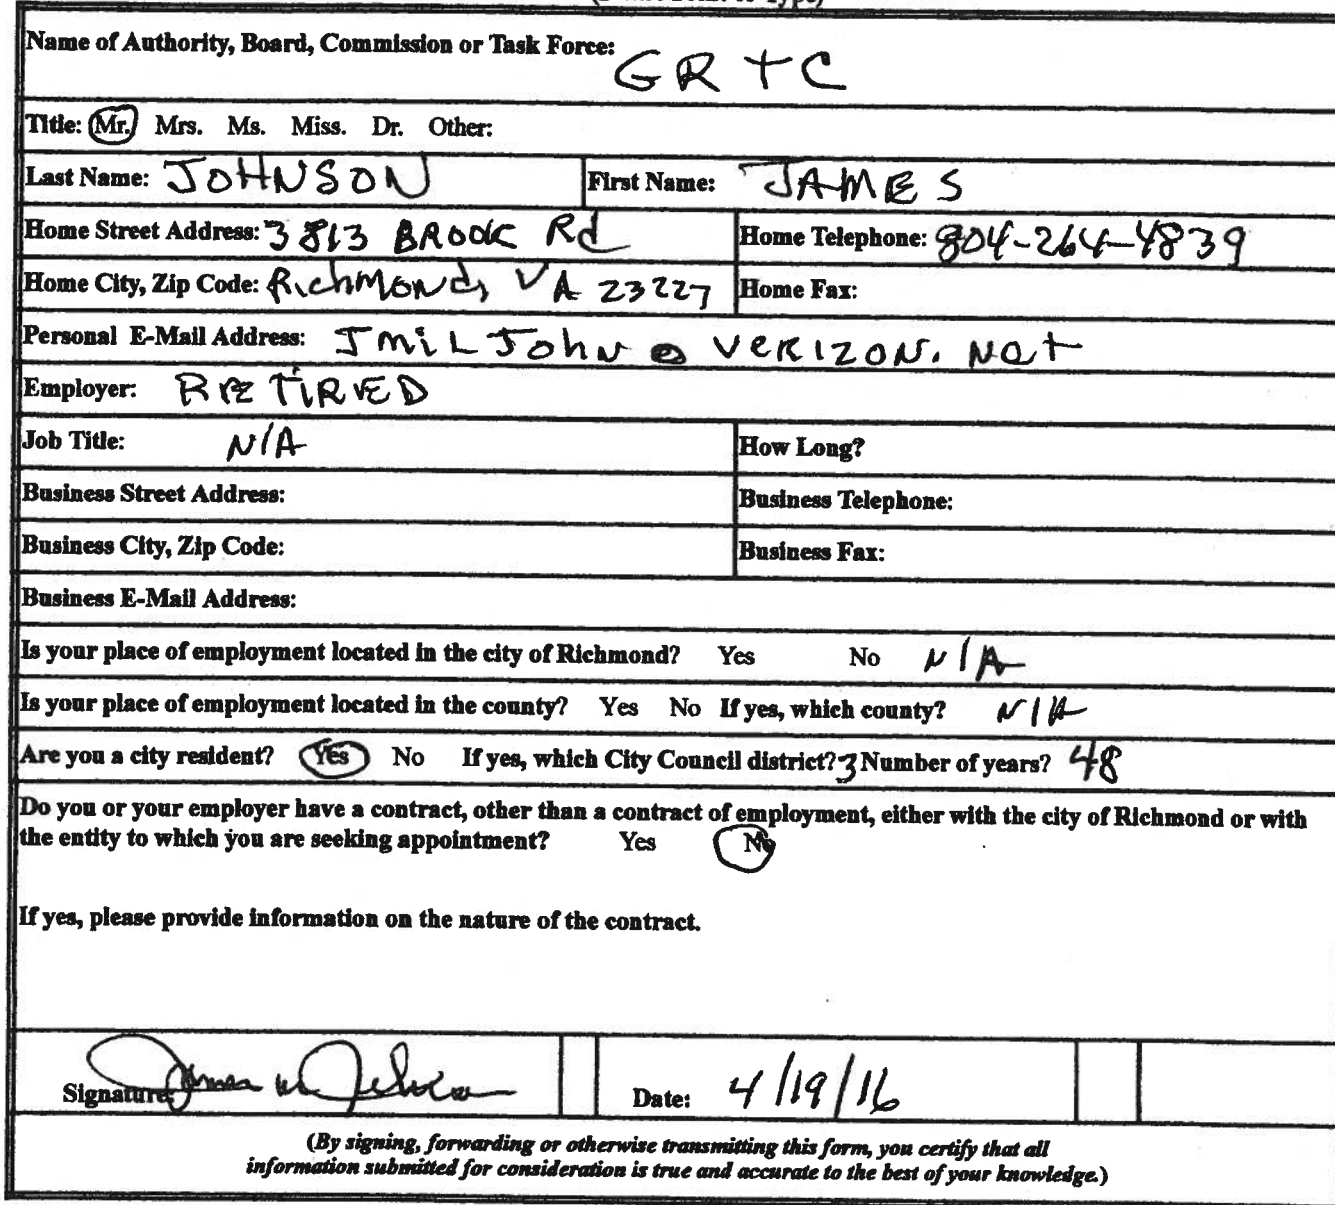 Name of Authority, Board, Commission or Task Force: GRTC
Title: Mr. Mrs. Ms. Miss. Dr. Other:
Last Name: JOHNSON First Name: JAMES
Home Street Address: 3813 BROOK Rd Home Telephone: 804-264-4839
Home City, Zip Code: RichMond, VA 23227 Home Fax:
Personal E-Mail Address: JmiLJohN@VERIZON.NET
Employer: RETIRED
Job Title: N/A How Long?
Business Street Address: Business Telephone:
Business City, Zip Code: Business Fax:
Business E-Mail Address:
Is your place of employment located in the city of Richmond? Yes No N/A
Is your place of employment located in the county? Yes No If yes, which county? N/A
Are you a city resident? Yes No If yes, which City Council district? 3 Number of years? 48
Do you or your employer have a contract, other than a contract of employment, either with the city of Richmond or with
the entity to which you are seeking appointment? Yes No
If yes, please provide information on the nature of the contract.
Signature: James W Johnson Date: 4/19/16
(By signing, forwarding or otherwise transmitting this form, you certify that all
information submitted for consideration is true and accurate to the best of your knowledge.)